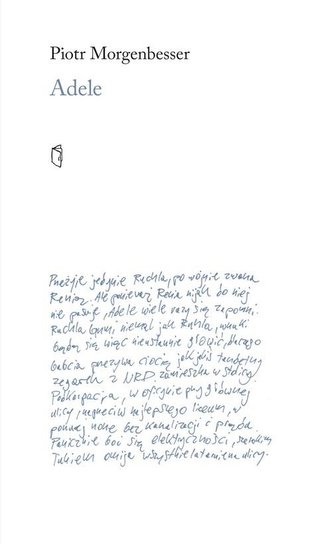 Piotr Morgenbesser
Adele
Przeżyje jedynie Ruchla, po wojnie zwana
Renią. Ale ponieważ Renia nijak do niej
nie pasuje, Adele wiele razy się zapomni.
Ruchla brzmi niemal jak Ruhla, wnuki
będą się więc nieustannie głowić, dlaczego
babcia przezywa ciocię jak jakiś tandetny
zegarek z NRD. Zamieszka w stolicy
Podkarpacia, w oficynie przy głównej
ulicy, naprzeciw najlepszego liceum, w
ponurej norze bez kanalizacji i prądu.
Panicznie boi się elektryczności, szerokim
łukiem omija wszystkie latarnie na ulicy.